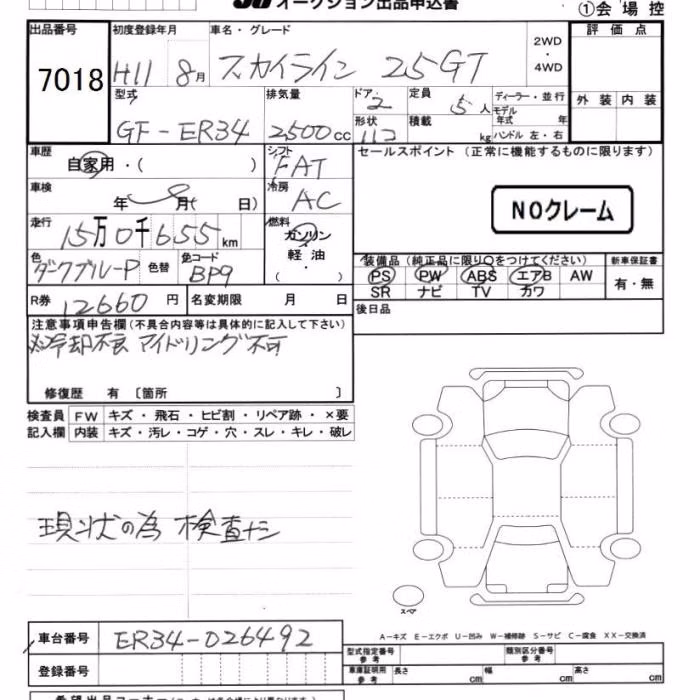 オークション出品申込書
①会場控
出品番号 7018
初度登録年月 H11 8月
車名・グレード スカイライン 25GT
2WD・4WD
評価点
外装 内装
型式 GF-ER34
排気量 2500cc
ドア 2
形状 117
定員 5人
積載 kg
ディーラー・並行
モデル年式 年
ハンドル 左・右
車歴 自家用・( )
シフト FAT
車検 年 月( 日)
冷房 AC
走行 15万0千655km
燃料 ガソリン 軽油 ( ・ )
色 ダークブルーP 色替
色コード BP9
R券 12660円 名変期限 月 日
セールスポイント (正常に機能するものに限ります)
NOクレーム
装備品(純正品に限り○をつけてください)
PS PW ABS エアB AW
SR ナビ TV カワ
新車保証書
有・無
後日品
注意事項申告欄(不具合内容等は具体的に記入して下さい)
※冷却不良 アイドリング不可
修復歴 有 〔箇所 〕
検査員 FW キズ・飛石・ヒビ割・リペア跡・×要
記入欄 内装 キズ・汚レ・コゲ・穴・スレ・キレ・破レ
現状の為 検査ナシ
スペア
A-キズ E-エクボ U-凹み W-補修跡 S-サビ C-腐食 XX-交換済
車台番号 ER34-026492
登録番号
型式指定番号 参考
類別区分番号 参考
車庫証明用 参考 長さ cm 幅 cm 高さ cm